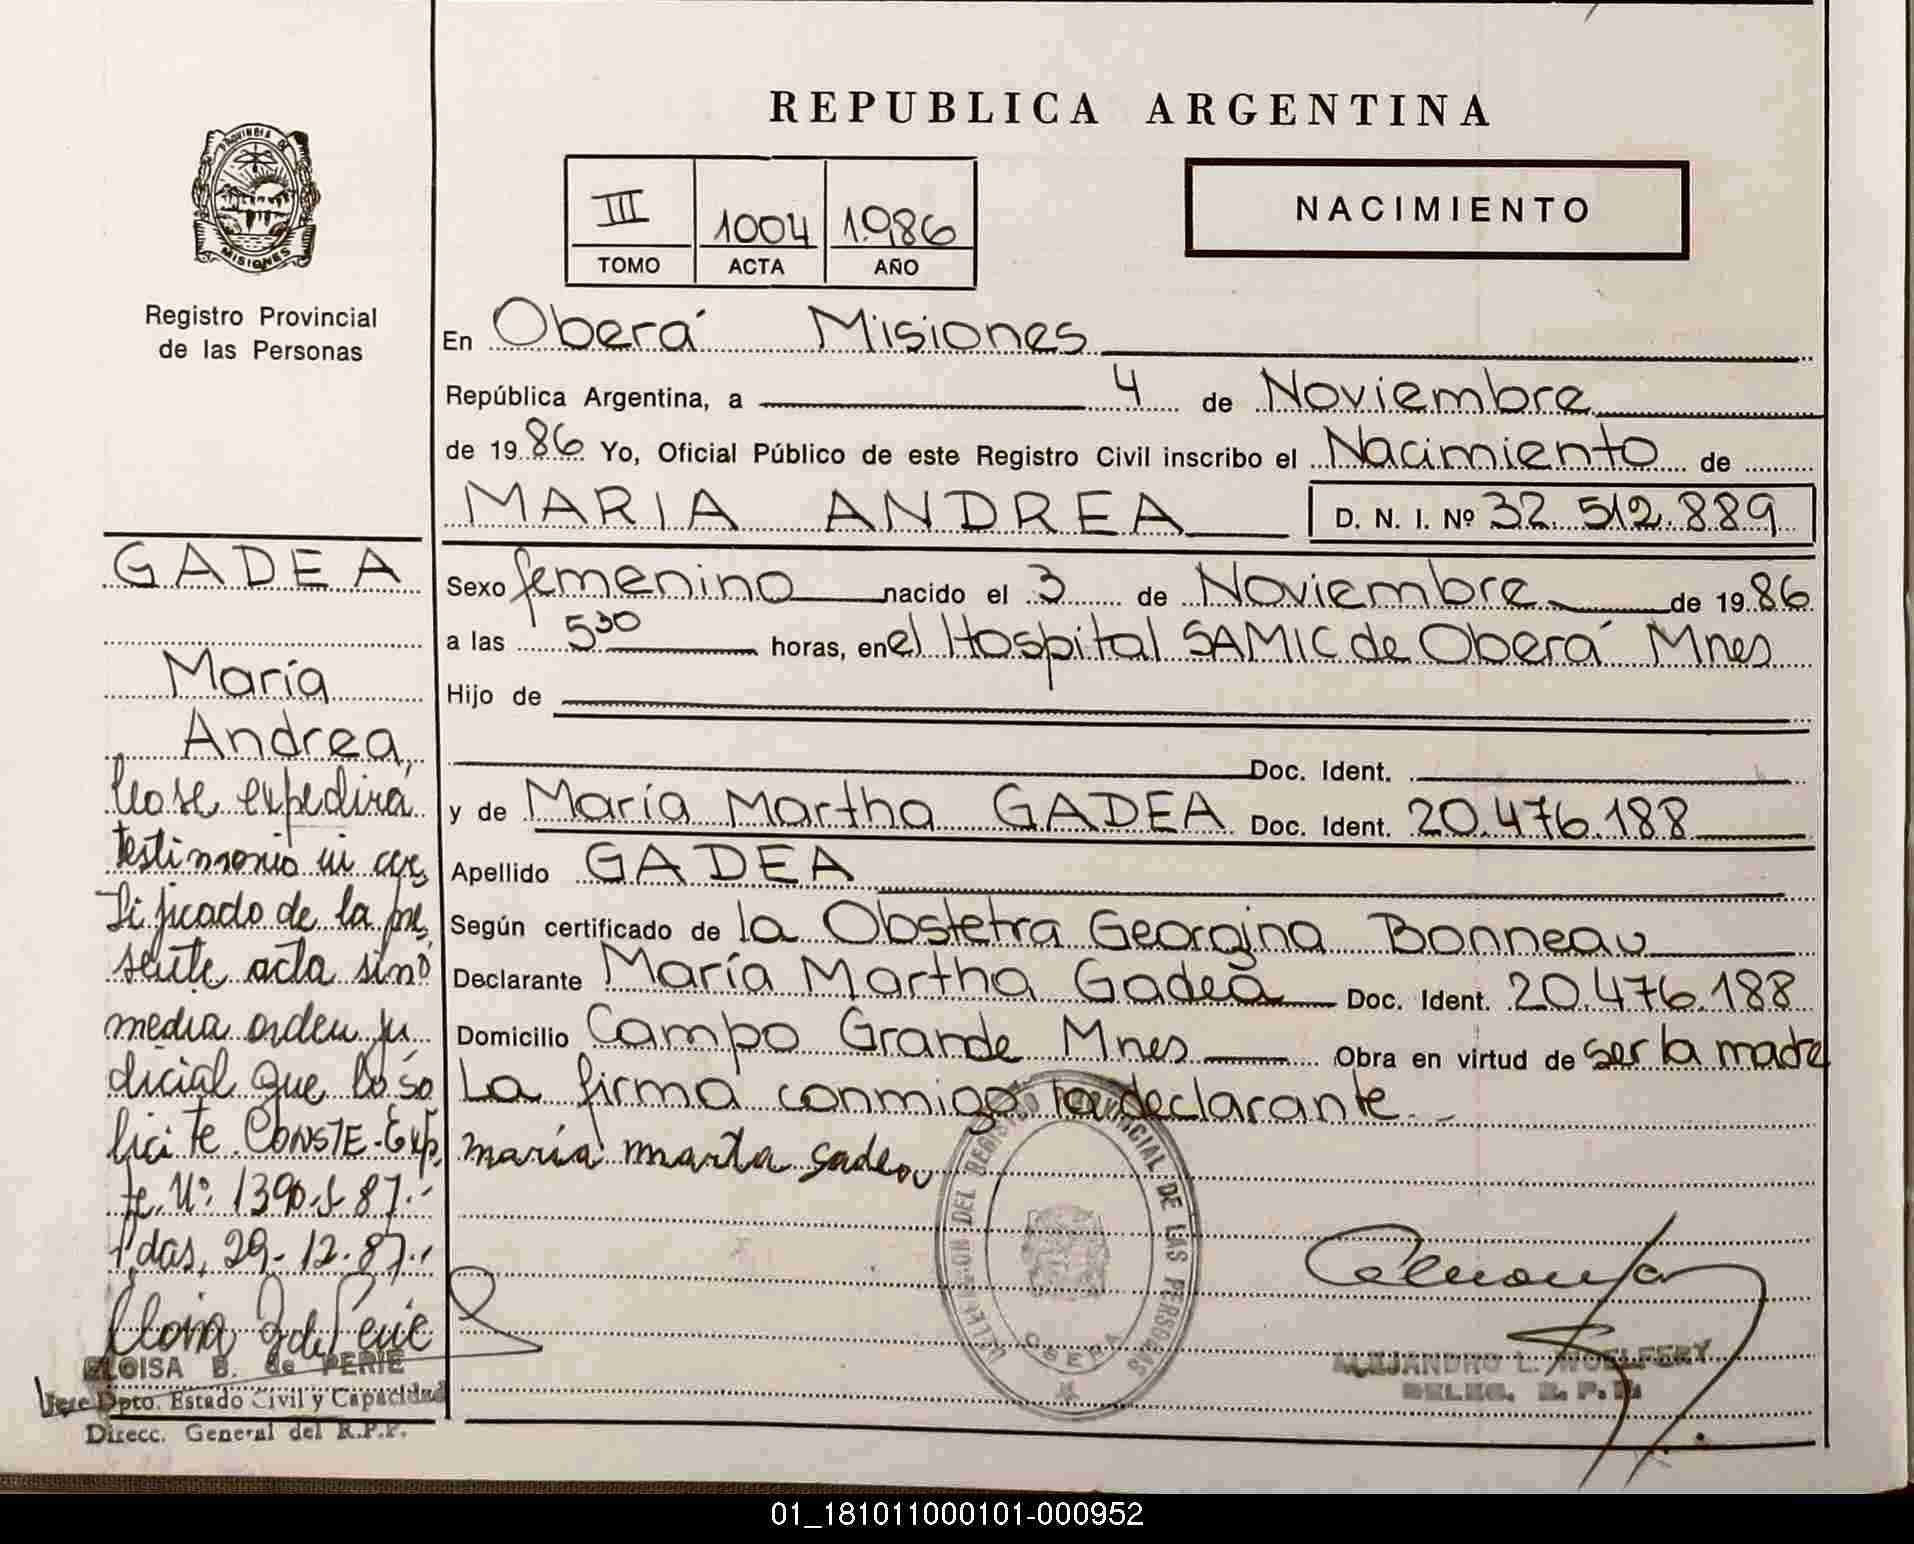 PROVINCIA DE
MISIONES
Registro Provincial
de las Personas
GADEA
María
Andrea
No se expedirá
testimonio ni cer-
tificado de la pre-
sente acta sino
media orden ju
dicial que lo so
licite. CONSTE-Exp
te. Nº. 1390-S-87.-
P/das, 29-12-87.-
ELOISA B. de PERIE
Jefe Dpto. Estado Civil y Capacidad
Direcc. General del R.P.P.
REPUBLICA ARGENTINA
III 1004 1.986
TOMO ACTA AÑO
NACIMIENTO
En Oberá Misiones
República Argentina, a 4 de Noviembre
de 19 86 Yo, Oficial Público de este Registro Civil inscribo el Nacimiento de
MARIA ANDREA D. N. I. Nº 32.512.889
Sexo femenino nacido el 3 de Noviembre de 19 86
a las 5 30 horas, en el Hospital SAMIC de Oberá Mnes
Hijo de
Doc. Ident.
y de María Martha GADEA Doc. Ident. 20.476.188
Apellido GADEA
Según certificado de la Obstetra Georgina Bonneau
Declarante María Martha Gadea Doc. Ident. 20.476.188
Domicilio Campo Grande Mnes Obra en virtud de ser la madre
La firma conmigo la declarante.-
maría marta gadea
DELEGACION DEL REGISTRO PROVINCIAL DE LAS PERSONAS
OBERA
ALEJANDRO L.
DELEG. R. P. P.
01_181011000101-000952